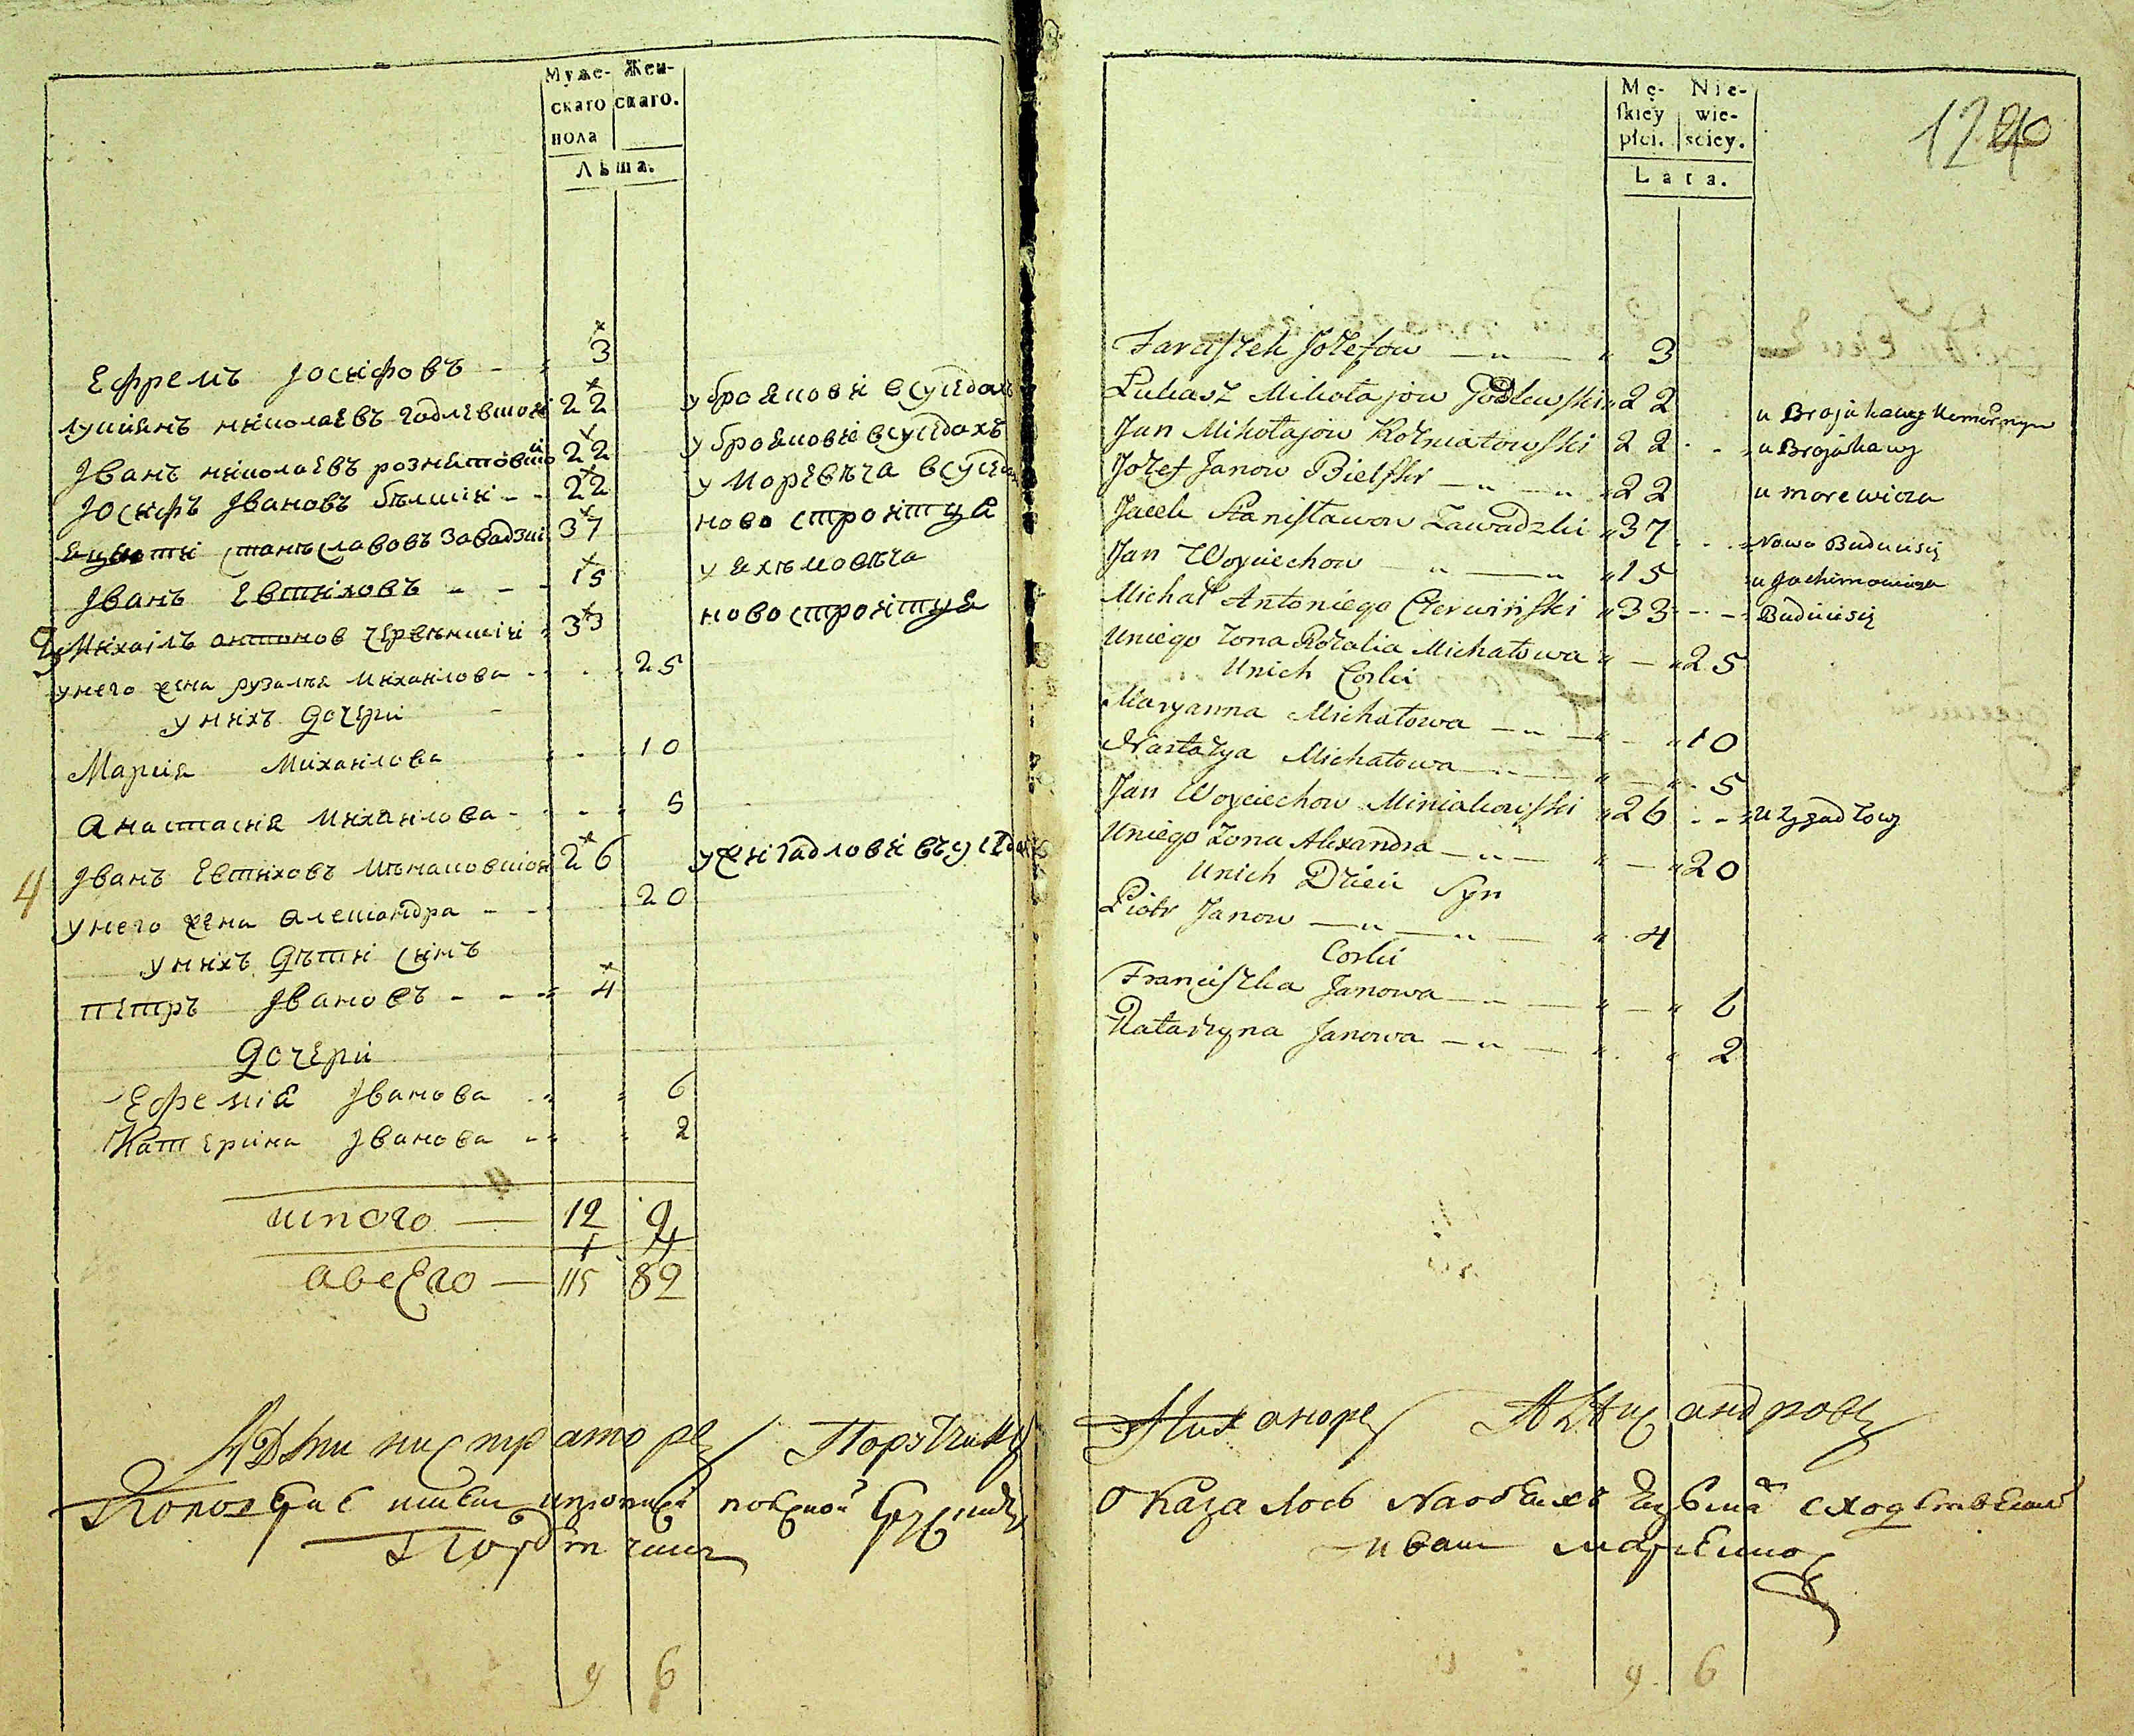 Муже- Жен-
скаго скаго.
пола
Лѣта.
Ефремъ Iосифовъ - 3
лукиянъ николаевъ годлевской 22 у брояковй всуседахъ
Iванъ николаевъ рознятовский 22 у брояковй всуседахъ
Iосифъ Iвановъ бѣлский - - 22 у моревѣча всусед
станѣславовъ завадзкий 37 ново строитця
Iванъ Евтиховъ - - - 15 у яхѣмовѣча
3 Михаилъ антонов червѣнский 33 новостроитця
унего жена рузалѣя михаилова - - 25
у нихъ дочери
Мария михаилова 10
анастасия михаилова - 5
4 Iванъ Евтиховъ мѣнаковской 26
унего жена александра - - 20
у нихъ дѣти синъ
петръ Iвановъ - - - 4
дочери
Ефремия Iванова 6
Катерина Iванова 2
итого — 12 9
1 4
авсего — 115 82
Администраторъ Порѣчик
Поручикъ
9 6
Mę- Nie-
skiey wie-
płci. sciey.
Lata.
124
Farciszek Jozefow 3
Łukasz Mikołajow Godlewski 22 u Brojakowy
Jan Mikołajow Rozniatowski 22 u Brojakowy
Jozef Janow Bielski 22 u morewicza
Jacek Stanisławow Zawadzki 37 Nowo Buduiesię
Jan Woyciechow 15 u Jachimowicza
Michał Antoniego Czerwiński 33 Buduiesię
Uniego Zona Rozalia Michałowa 25
Unich Corki
Maryanna Michałowa 10
Nastazya Michałowa 5
Jan Woyciechow Miniakowski 26
Uniego Zona Alexandra 20
Unich Dzieci Syn
Piotr Janow 4
Corki
Franciszka Janowa 6
Katarzyna Janowa 2
Никаноръ Александровъ
Оказалось
иван
9 6